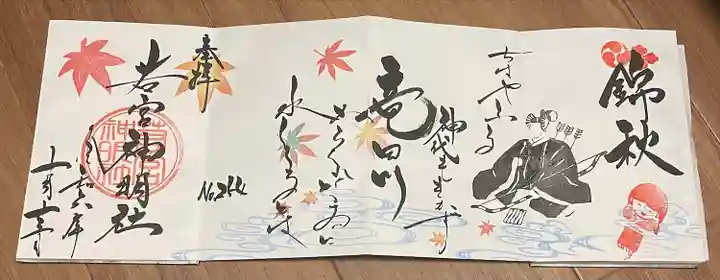 錦秋
ちはやふる
神代もきかず
竜田川
からくれなゐに
水くくるとは
No.244
奉拝
若宮神明社
令和六年